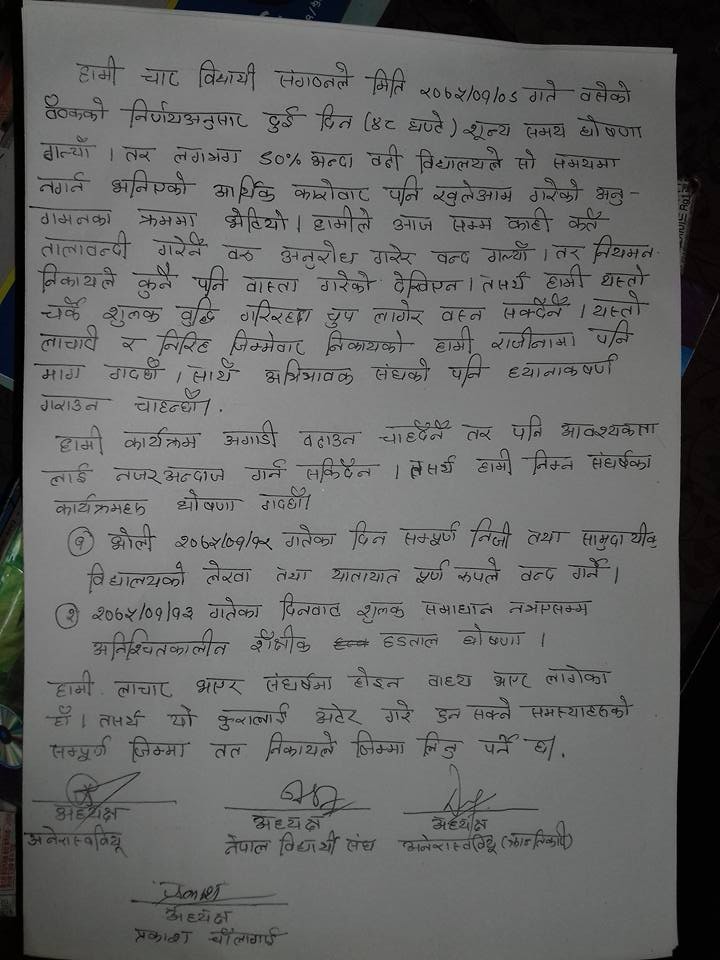 हामी चार विद्यार्थी संगठनले मिति २०६५/०१/०८ गते वसेको
वैठकको निर्णयअनुसार दुई दिन (४८ घण्टे) शून्य समय घोषणा
गऱ्यौं । तर लगभग ८०% भन्दा वढी विद्यालयले सो समयमा
नगर्न भनिएको आर्थिक कारोवार पनि खुलेआम गरेको अनु-
गमनका क्रममा भेटियो । हामीले आज सम्म काही कतै
तालावन्दी गरेनै वरु अनुरोध गरेर वन्द गऱ्यौं । तर नियमन
निकायले कुनै पनि वास्ता गरेको देखिएन । तसर्थ हामी यस्तो
चर्कै शुलक वृद्धि गरिरहदा चुप लागेर वस्न सक्दैनै । यस्तो
लाचारी र निरिह जिम्मेवार निकायको हामी राजीनामा पनि
माग गदछौं । साथै अभिभावक संघको पनि ध्यानाकषर्ण
गराउन चाहन्छौं ।
हामी कार्यक्रम अगाडी वढाउन चाहदैनै तर पनि आवश्यकता
लाई नजर अन्दाज गर्न सकिदैन । तसर्थ हामी निम्न संघर्षका
कार्यक्रमहरु घोषणा गदछौं।
१ भोली २०६५/०१/१२ गतेका दिन सम्पूर्ण निजी तथा सामुदायीक
विद्यालयको लेखा तथा यातायात पूर्ण रुपले वन्द गर्ने ।
२ २०६५/०१/१३ गतेका दिनवाट शुलक समाधान नभएसम्म
अनिश्चितकालीन शैक्षीक हडताल घोषणा ।
हामी लाचार भएर संघर्षमा होइन वाध्य भएर लागेका
हौं । तसर्थ यो कुरालाई अटेर गरे हुन सक्ने समस्याहरुको
सम्पूर्ण जिम्मा तत निकायले जिम्मा लिनु पर्ने छ।.
अध्यक्ष अध्यक्ष अध्यक्ष
अनेरास्ववियू नेपाल विद्यार्थी संघ अनेरास्ववियू (क्रान्तिकारी)
अध्यक्ष
प्रकाश चौलागाई